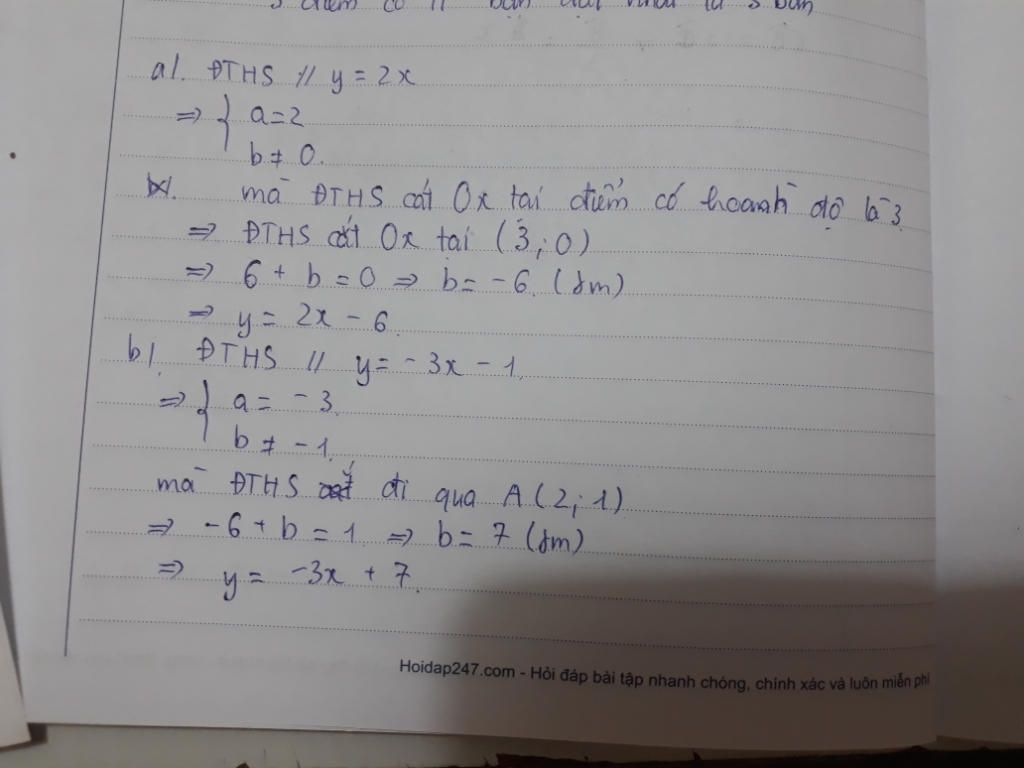 3 điểm có
a/. ĐTHS // y = 2x
=> { a = 2
b ≠ 0.
mà ĐTHS cắt Ox tại điểm có hoành độ là 3.
=> ĐTHS cắt Ox tại (3; 0)
=> 6 + b = 0 => b = -6. (tm)
=> y = 2x - 6.
b/. ĐTHS // y = -3x - 1.
=> { a = -3.
b ≠ -1.
mà ĐTHS cắt đi qua A (2; 1)
=> -6 + b = 1 => b = 7 (tm)
=> y = -3x + 7.
Hoidap247.com - Hỏi đáp bài tập nhanh chóng, chính xác và luôn miễn phí